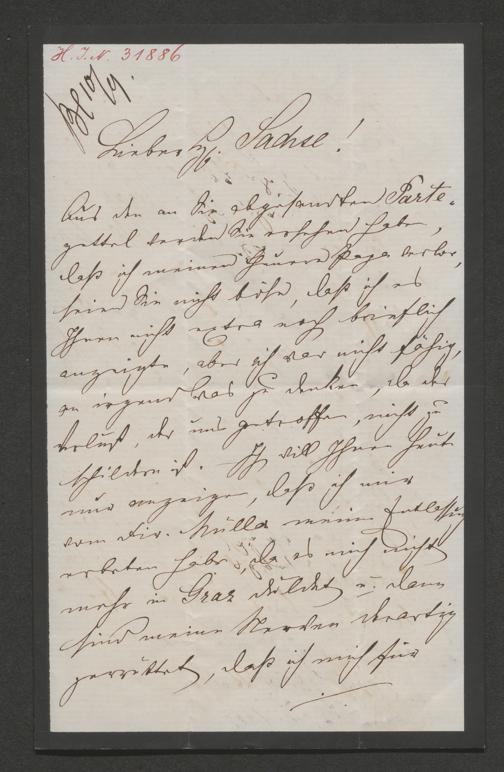 H. I. N. 31886
Lieber H. Sachse!
Aus den an Sie abgesandten Parte-
zettel werden Sie ersehen haben,
daß ich meinen theuern Papa verlor,
seien Sie nicht böse, daß ich es
Ihnen nicht extra noch brieflich
anzeigte, aber ich war nicht fähig,
an irgend was zu denken, da der
Verlust, der uns getroffen, nicht zu
schildern ist. Ich will Ihnen heute
nur anzeigen, daß ich mir
vom Dir. Müller meine Entlassung
erbeten habe, da es mich nicht
mehr in Graz duldet u. dann
sind meine Nerven derartig
zerrüttet, daß ich mich für